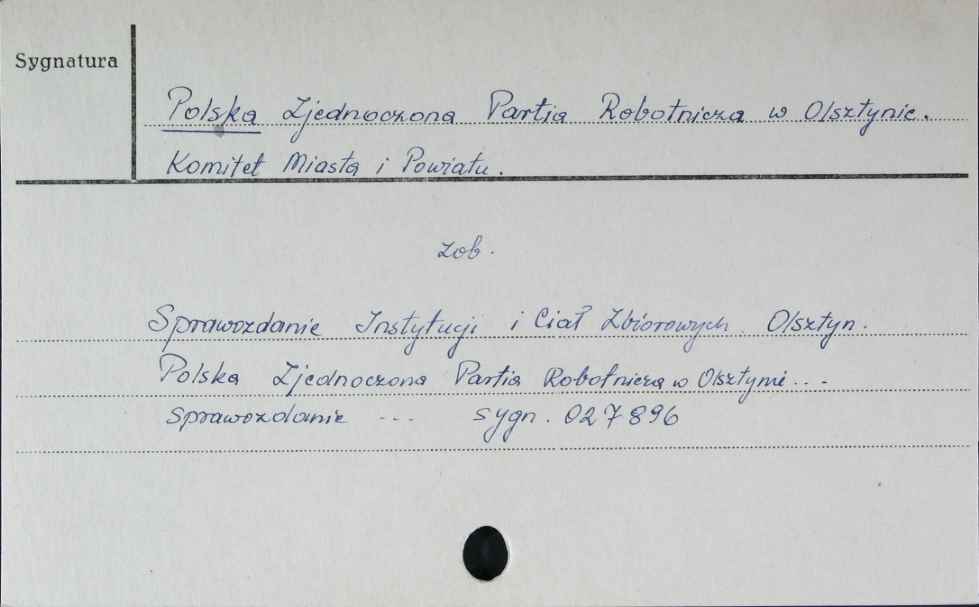 Sygnatura
Polska Zjednoczona Partia Robotnicza w Olsztynie.
Komitet Miasta i Powiatu.
zob.
Sprawozdanie Instytucji i Ciał Zbiorowych. Olsztyn.
Polska Zjednoczona Partia Robotnicza w Olsztynie...
Sprawozdanie ... sygn. 027896